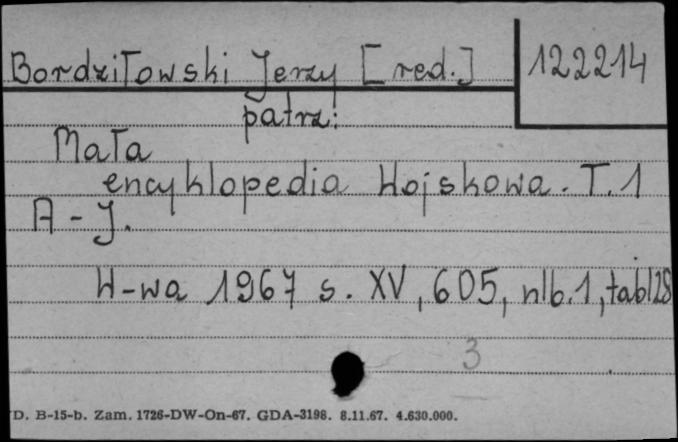 Bordziłowski Jerzy [red.] 122214
patrz:
Mała
encyklopedia Wojskowa. T. 1
A - J.
W-wa 1967 s. XV, 605, nlb. 1, tabl 28
3
D. B-15-b. Zam. 1726-DW-On-67. GDA-3198. 8.11.67. 4.630.000.